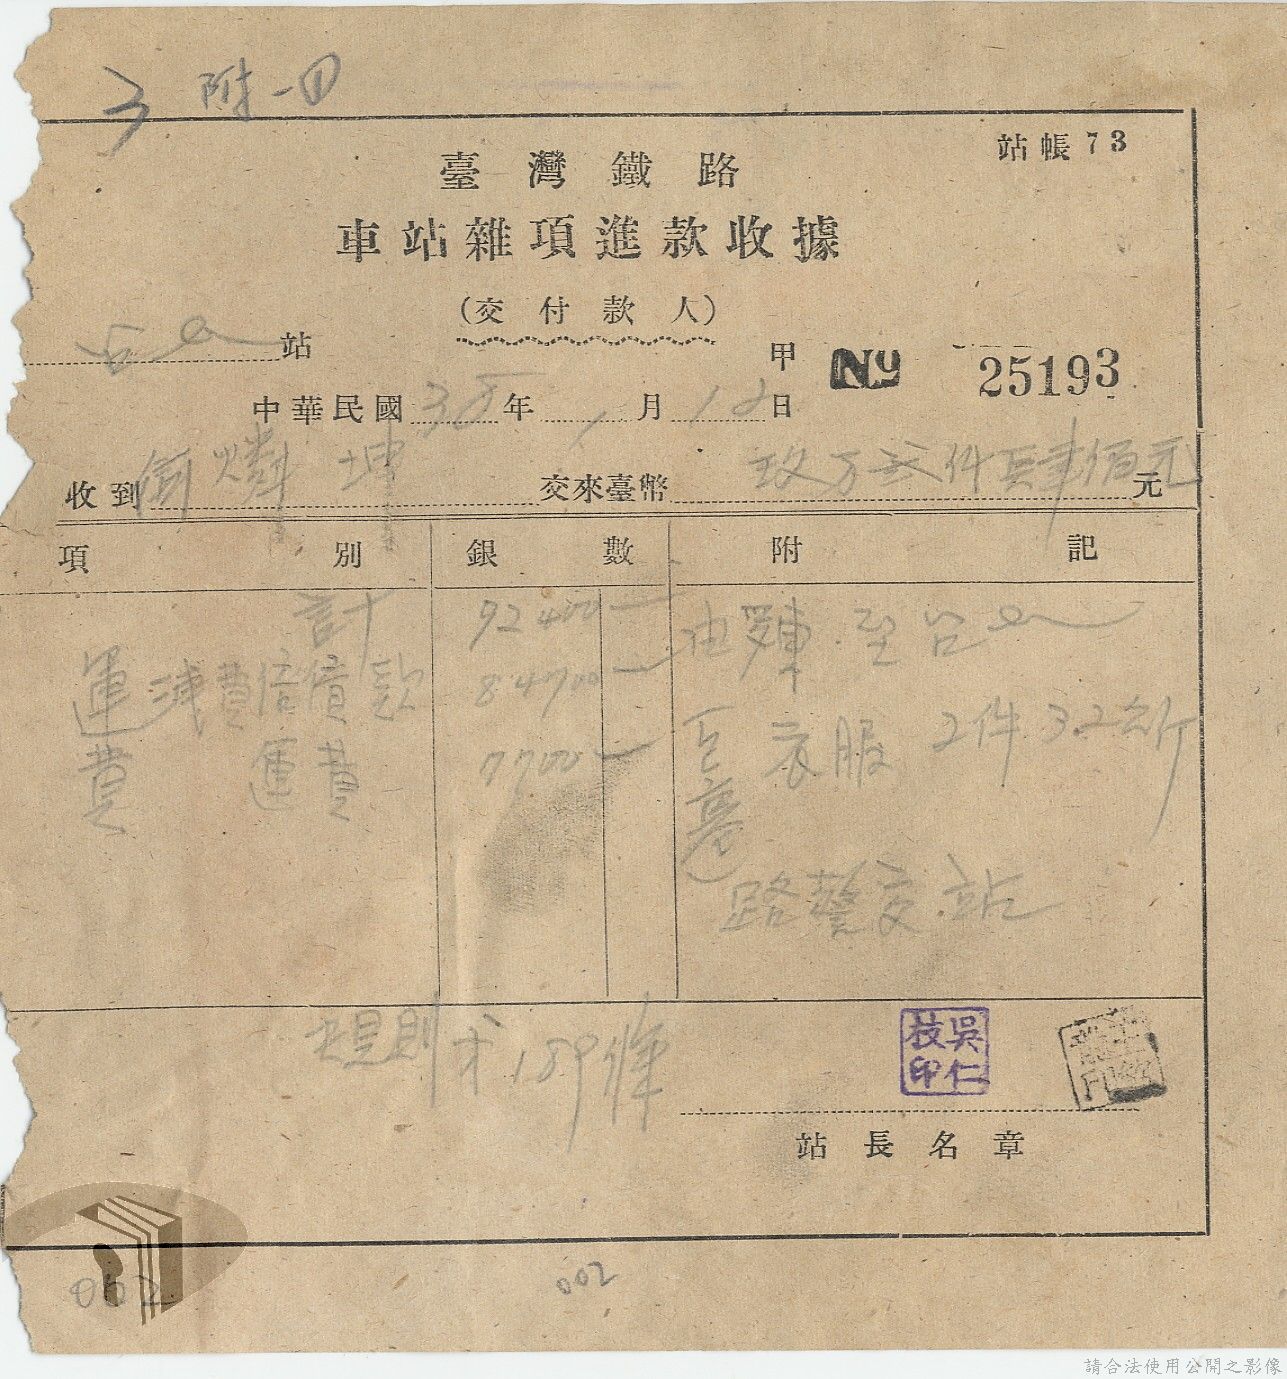 3 附一④
站帳73
臺灣鐵路
車站雜項進款收據
(交付款人)
站
甲 No 25193
中華民國38年1月12日
收到 燐坤 交來臺幣 玖万弍仟肆佰元 元
項別 銀數 附記
計 92400 至台
運費 減費倍償款 84700
衣服 2件 32公斤
運費 7700
路警交站
規則 189條
吳仁枝印
站長名章
002
002
請合法使用公開之影像